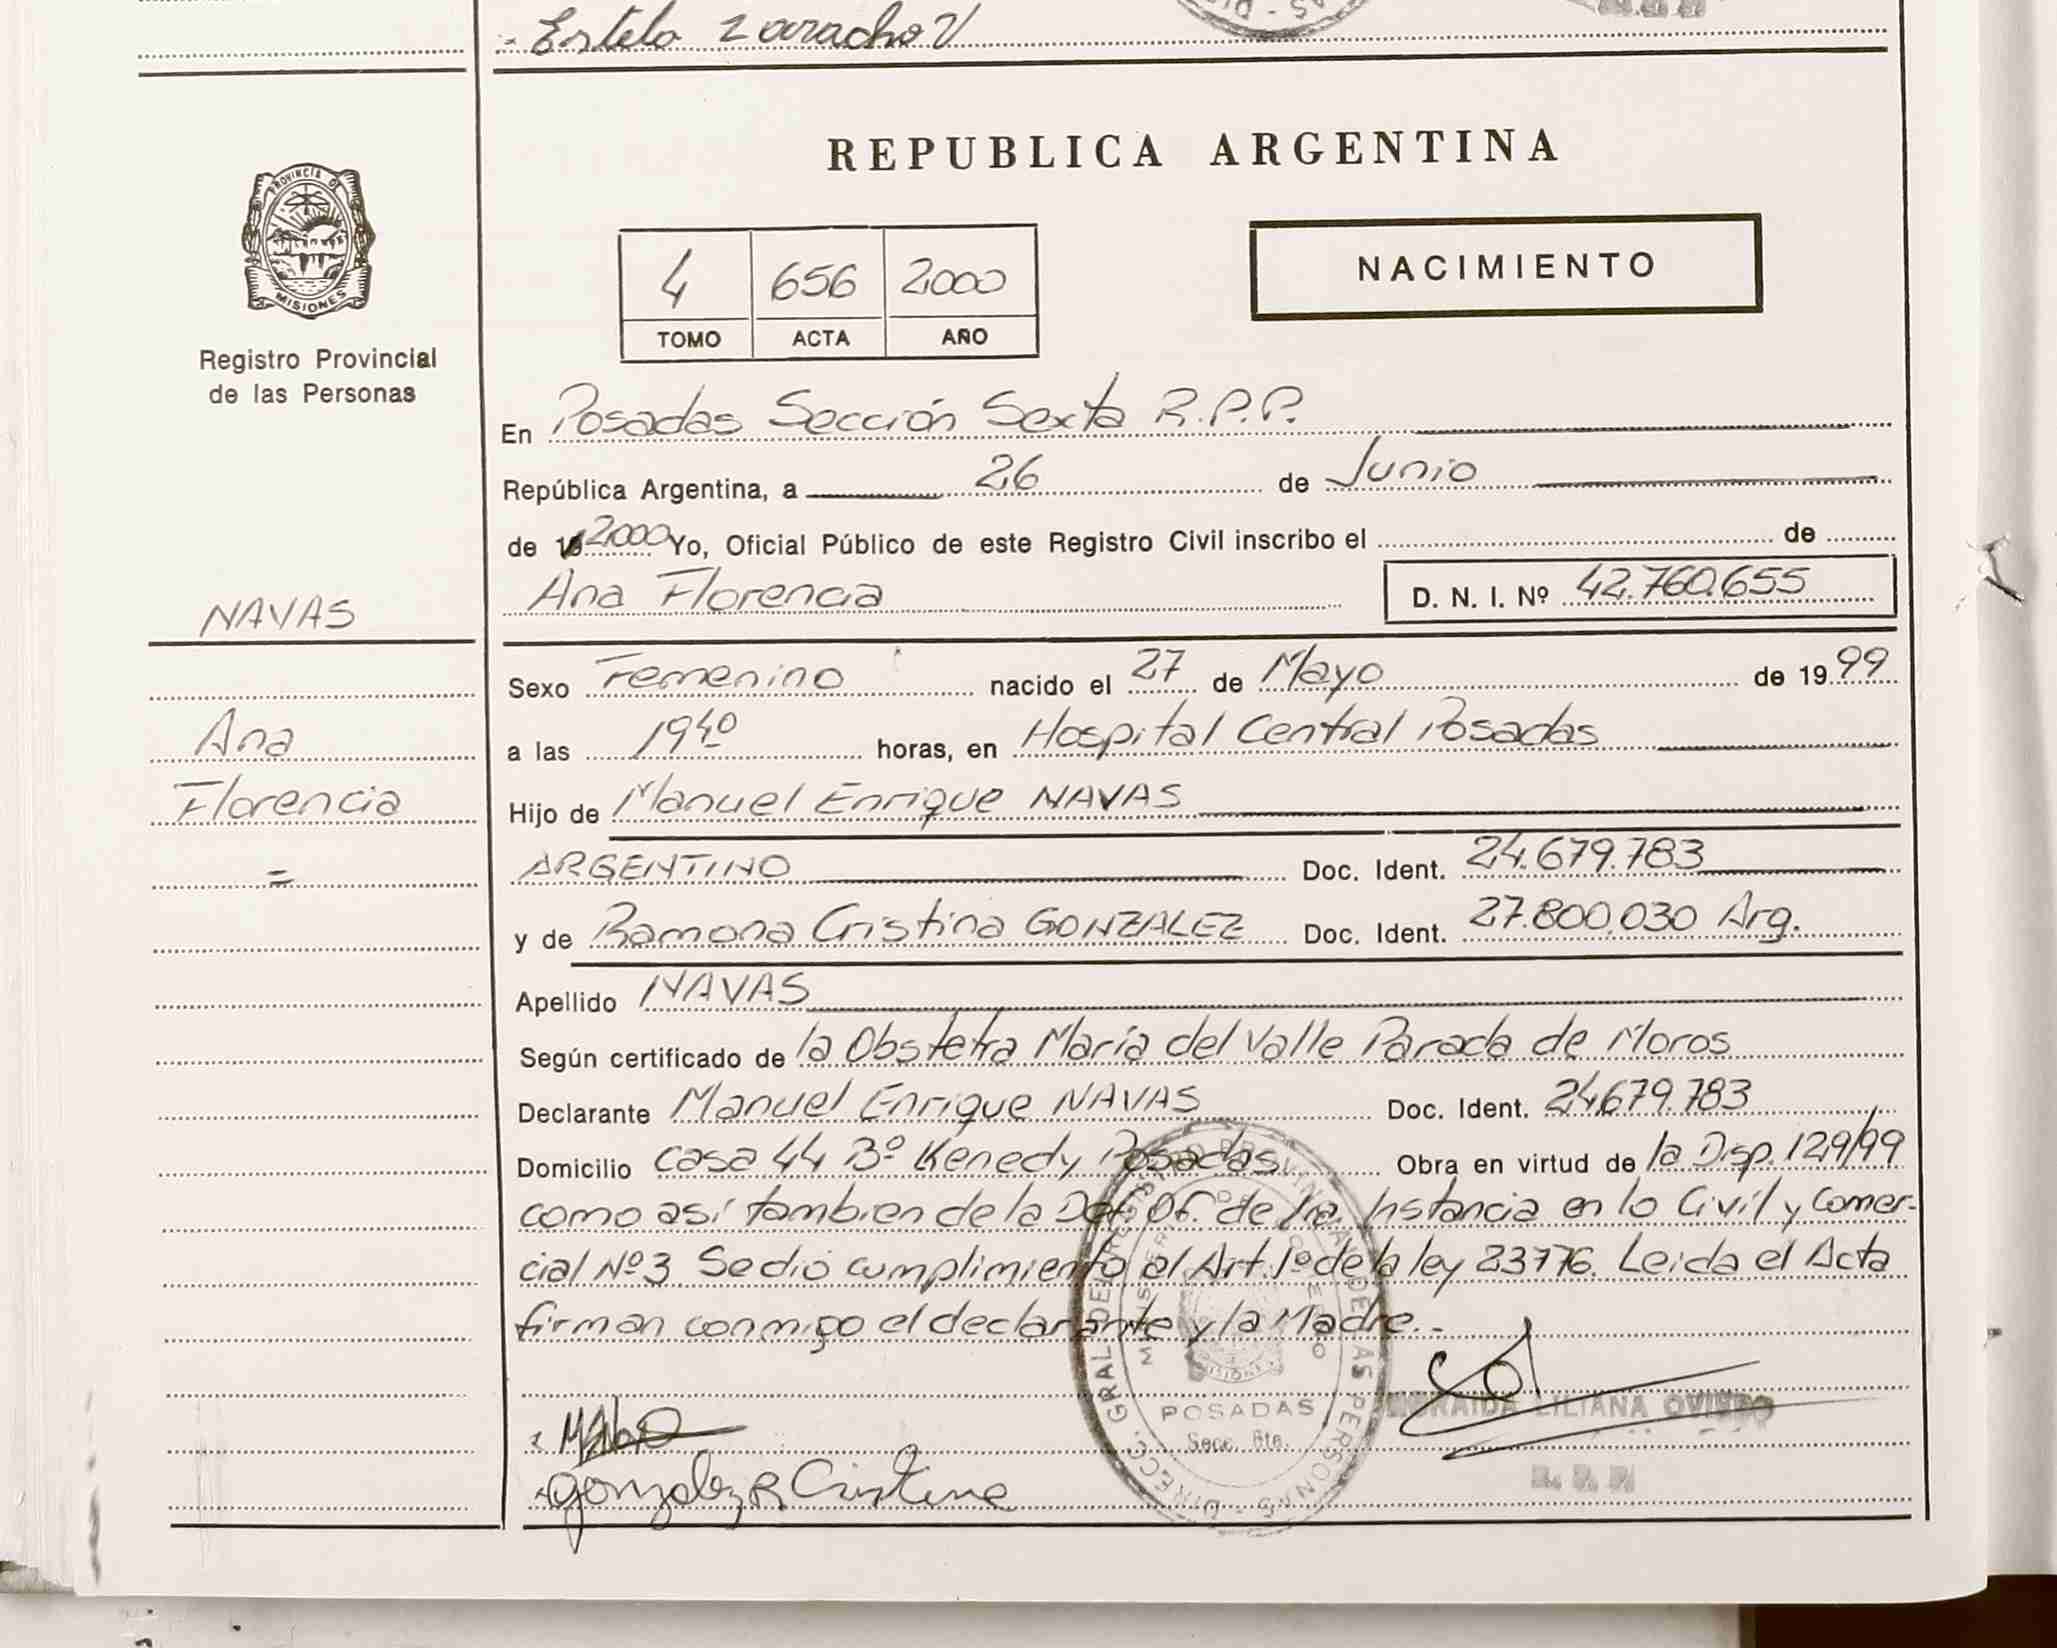 Estela Zaracho V
REPUBLICA ARGENTINA
PROVINCIA DE
MISIONES
Registro Provincial
de las Personas
4 656 2000
TOMO ACTA AÑO
NACIMIENTO
En Posadas Sección Sexta R.P.P.
República Argentina, a 26 de Junio
de 19 2000 Yo, Oficial Público de este Registro Civil inscribo el de
NAVAS
Ana Florencia D. N. I. Nº 42.760.655
Sexo Femenino nacido el 27 de Mayo de 19 99
Ana
a las 19 40 horas, en Hospital Central Posadas
Florencia
Hijo de Manuel Enrique NAVAS
=
ARGENTINO Doc. Ident. 24.679.783
y de Ramona Cristina GONZALEZ Doc. Ident. 27.800.030 Arg.
Apellido NAVAS
Según certificado de la Obstetra María del Valle Parada de Moros
Declarante Manuel Enrique NAVAS Doc. Ident. 24.679.783
Domicilio Casa 44 Bº Kenedy Posadas Obra en virtud de la Disp. 129/99
como así tambien de la Def. Of. de 1ra. Instancia en lo Civil y Comer-
cial Nº 3. Se dió cumplimiento al Art. 1º de la ley 23776. Leida el Acta
firman conmigo el declarante y la Madre.-
DIRECC. GRAL DEL REGISTRO PROVINCIAL DE LAS PERSONAS
MINISTERIO DE GOBIERNO
MISIONES
POSADAS
Secc. 6ta.
LILIANA OVIEDO
Gonzalez R Cristina